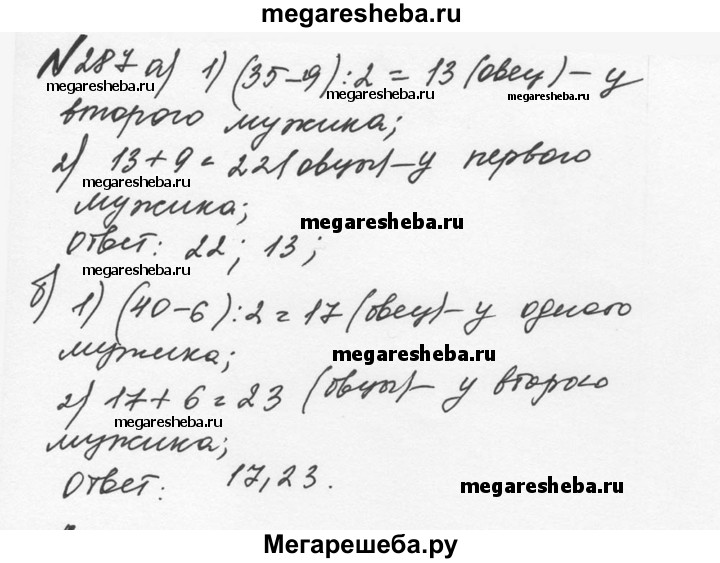 megaresheba.ru
№287 а) 1) (35-9):2 = 13 (овец) - у
megaresheba.ru megaresheba.ru megaresheba.ru
второго мужика;
2) 13+9=22(овцы)-у первого
megaresheba.ru
мужика;
megaresheba.ru
Ответ: 22; 13;
megaresheba.ru
б) 1) (40-6):2=17 (овец)-у одного
мужика;
megaresheba.ru
2) 17+6=23 (овцы)- у второго
megaresheba.ru
мужика;
Ответ: 17,23.
megaresheba.ru
Мегарешеба.ру